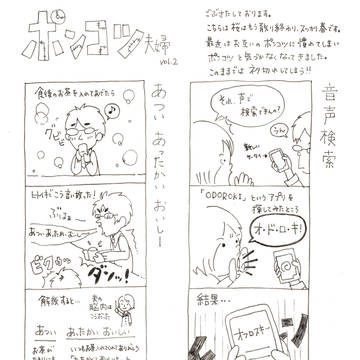 ポンコツ夫婦
vol.2
ごぶさたしております。
こちらは桜はもう散り終わり、スッカリ春です。
最近はお互いのポンコツに慣れてしまい
ポンコツと気づかなくなってきました。
このままでは ネタ切れしてしまう!!
音声検索
それ、声で
検索できんの?
うん
新しい
ケータイ→
「ODOROKI」というアプリを
探してみたところ
オ・ド・ロ・キ!
結果…
オフロスキー
あつい あったかい おいしー
食後のお茶を入れてあげたら
グビ
ヒトイキでこう言い放った!
ダンッ!
解説すると…
夫の
脳内は
こうだった
あつい
あったかい
おいしい
お茶が